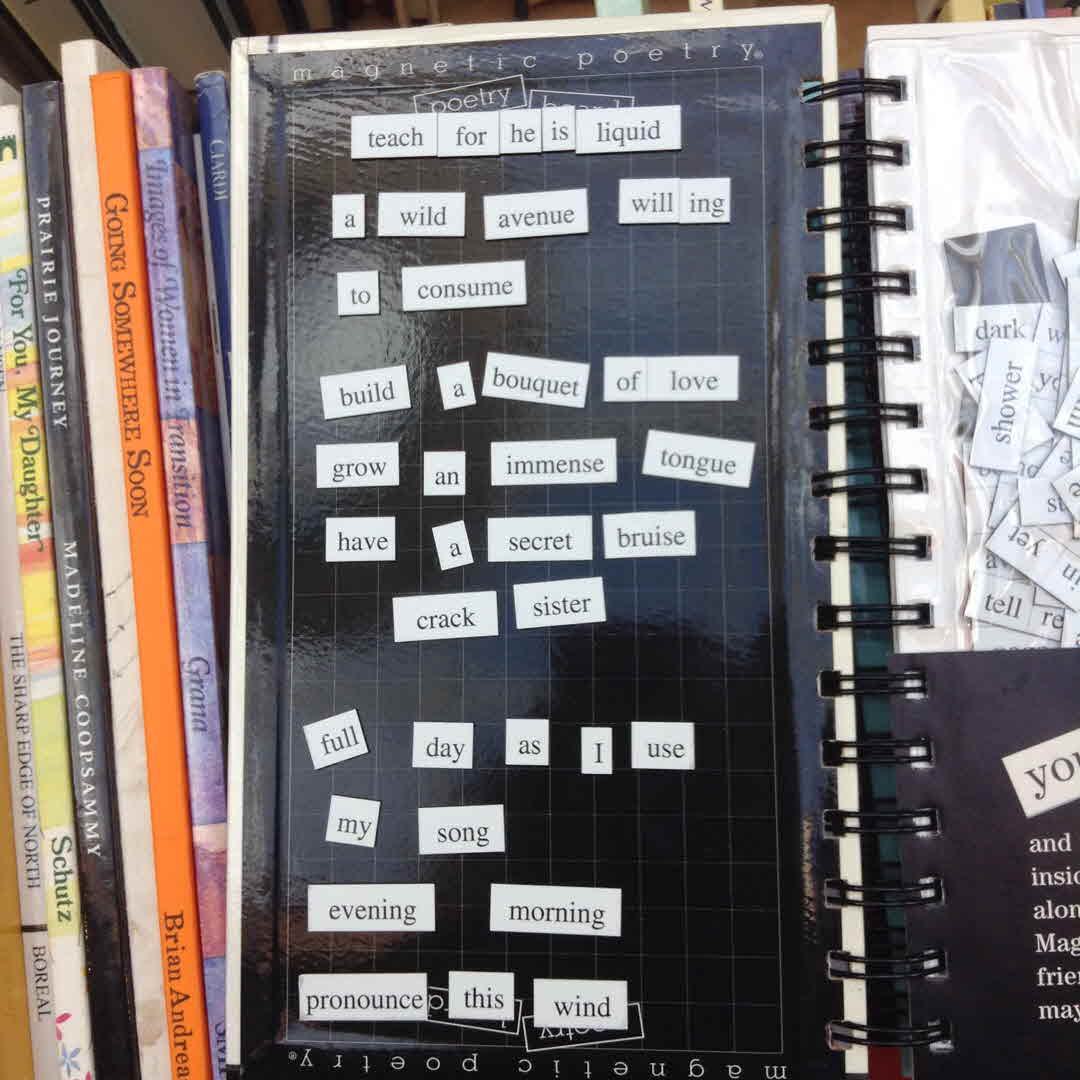 magnetic poetry®
poetry board
teach for he is liquid
a wild avenue will ing
to consume
build a bouquet of love
grow an immense tongue
have a secret bruise
crack sister
full day as I use
my song
evening morning
pronounce this wind
magnetic poetry®
For You, My Daughter
Schutz
THE SHARP EDGE OF NORTH
BOREAL
PRAIRIE JOURNEY
MADELINE COOPSAMMY
GOING SOMEWHERE SOON
Brian Andrea
Images of Women in Transition
Grana
CIARDI
dark
shower
yet
in
tell re
you
and
insid
alon
Mag
frie
may